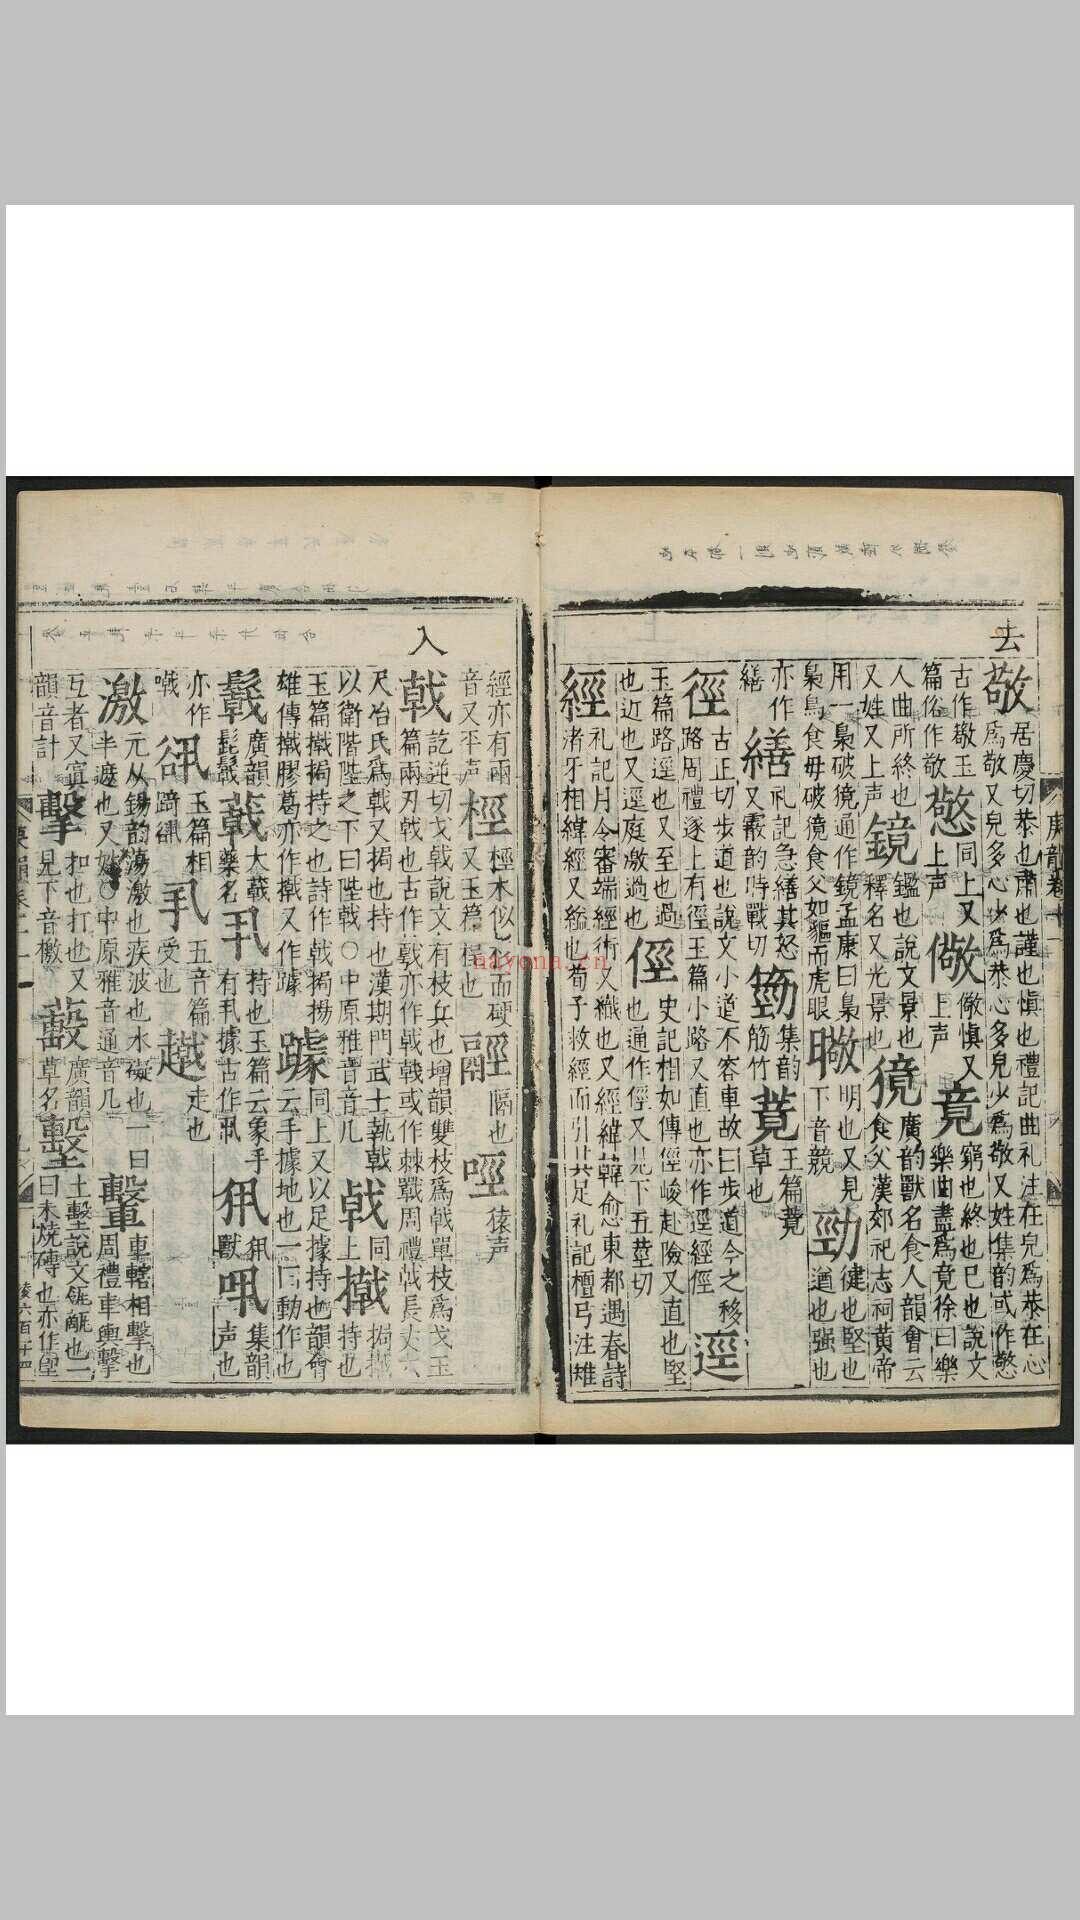 去
敬
居慶切恭也肅也謹也愼也禮記曲礼注在皃爲恭在心
爲敬又皃多心少爲恭心多皃少爲敬又姓集韵或作憼
古作敬玉
篇俗作敬
憼
同上又
上声
儆
儆愼又
上声
竟
窮也終也已也說文
樂曲盡爲竟徐曰樂
人曲所終也
又姓又上声
鏡
鑑也說文景也
釋名又光景也
獍
廣韵獸名食人韻會云
食父漢郊祀志祠黄帝
用一梟破獍通作鏡孟康曰梟
梟鳥食母破獍食父如貙而虎眼
曔
明也又見
下音競
勁
健也堅也
遒也强也
亦作
繕
繕
礼記急繕其怒
又霰韵時戰切
集韵
筋竹
蕽
玉篇
草也
徑
古正切步道也說文小道不容車故曰步道今之移
路周禮遂上有徑玉篇小路又直也亦作逕經俓
逕
玉篇路逕也又至也過
也近也又逕庭激過也
俓
史記相如傳俓峻赴險又直也堅
也通作徑又見下五莖切
經
礼記月令審端經術又織也又經緯韓愈東都遇春詩
渚牙相緯經又縊也荀子救經而引其足礼記檀弓注雉
經亦有兩
音又平声
桱
桱木似杉而硬
又玉篇桯也
隔也
𠲮
猿声
入
戟
訖逆切戈戟說文有枝兵也增韻雙枝爲戟單枝爲戈玉
篇兩刃戟也古作戟亦作戟或作棘韈周禮戟長丈六
尺冶氏爲戟又挶也持也漢期門武士執戟
以衛階陛之下曰陛戟○中原雅音音几
戟
同上
撠
挶撠
持也
玉篇撠挶持之也詩作戟挶揚
雄傳撠膠葛亦作撠又作躆
躆
同上又以足據持也韻會
云手據地也一曰動作也
廣韻
髭
大蕺
藥名
丮
持也玉篇云象手
有丮據古作丮
獸
集韻
声也
亦作
玉篇相
踦
丮
五音篇
受也
走也
激
元从錫韵蕩激也疾波也水礙也一曰
半遮也又姓○中原雅音通音几
轚
車轄相擊也
周禮車輿擊
互者又寘
韻音計
擊
扣也打也又
見下音檄
廣韻
草名
墼
土墼說文瓴甋也一
曰未燒磚也亦作
庚韻卷
nayona.cn